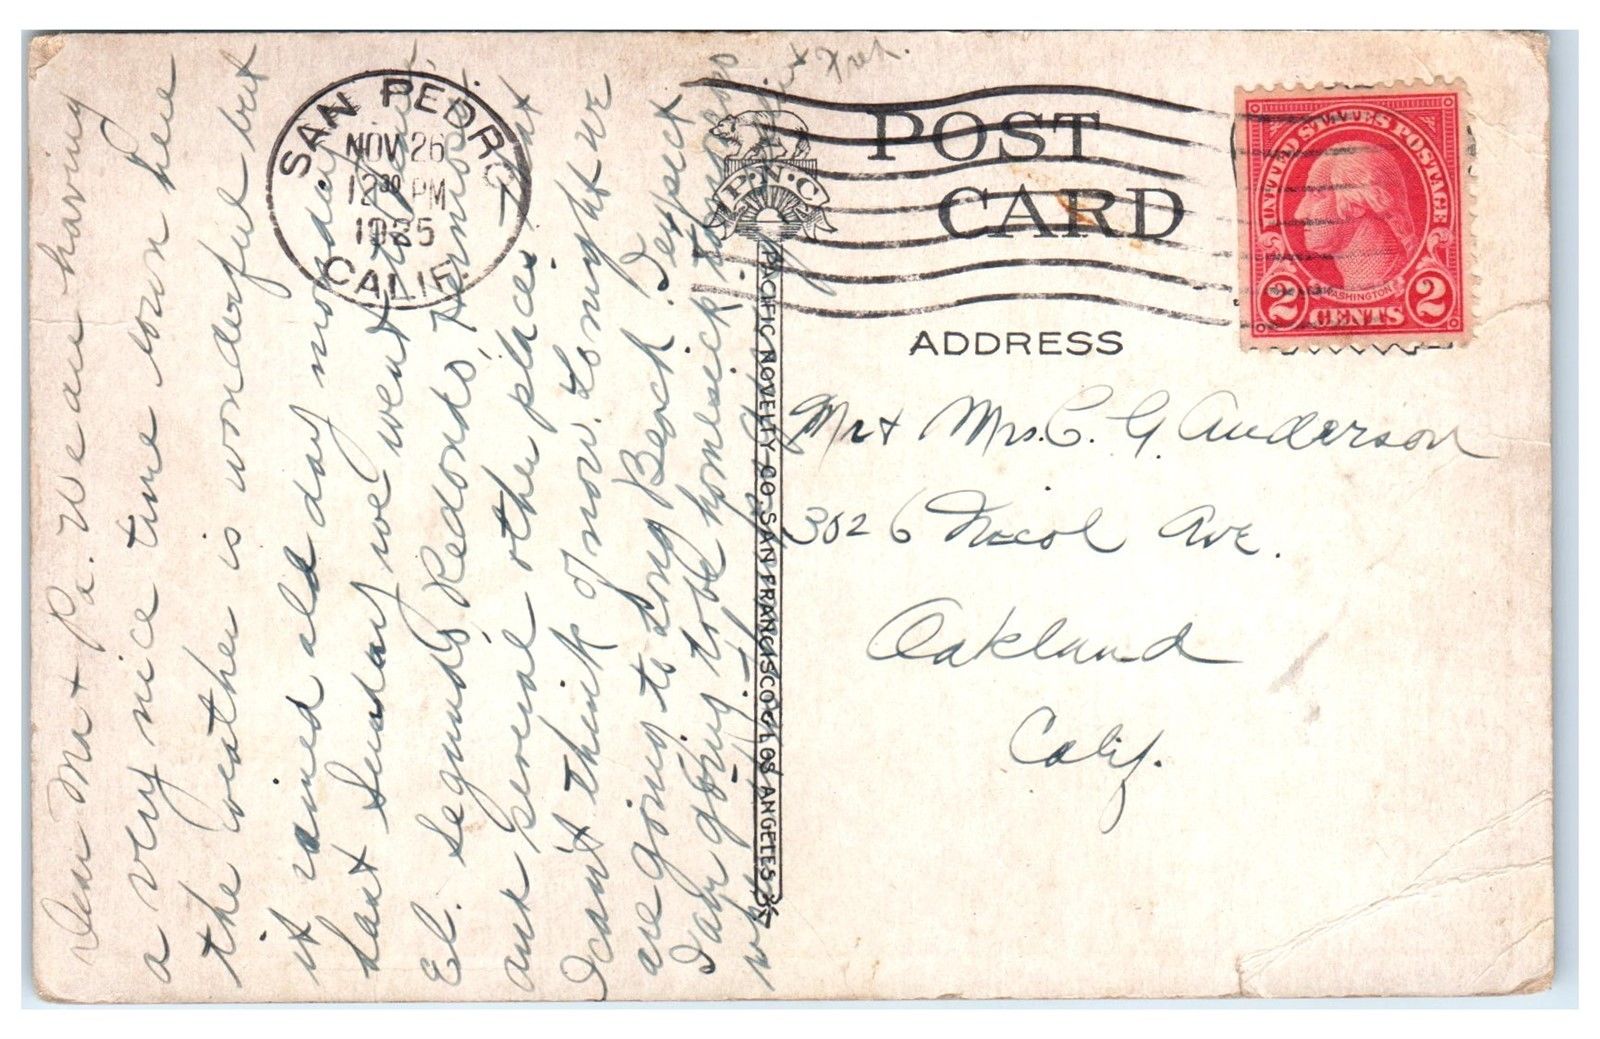 Dear Ma + Pa. We are having
a very nice time down here
the weather is wonderful but
it rained all day monday.
Last Sunday we went to
El. Segundo, Redondo, Hermosa,
and several other places that
I can't think of now. Tonight we
are going to Long Beach. I expect
I am going to be homesick
when I
Fred.
SAN PEDRO
NOV 26
12 30 PM
1935
CALIF.
P.N.C.
PACIFIC NOVELTY CO. SAN FRANCISCO & LOS ANGELES
POST
CARD
UNITED STATES POSTAGE
WASHINGTON
2 CENTS 2
ADDRESS
Mr + Mrs. C. G. Anderson
3026 Nicol Ave.
Oakland
Calif.